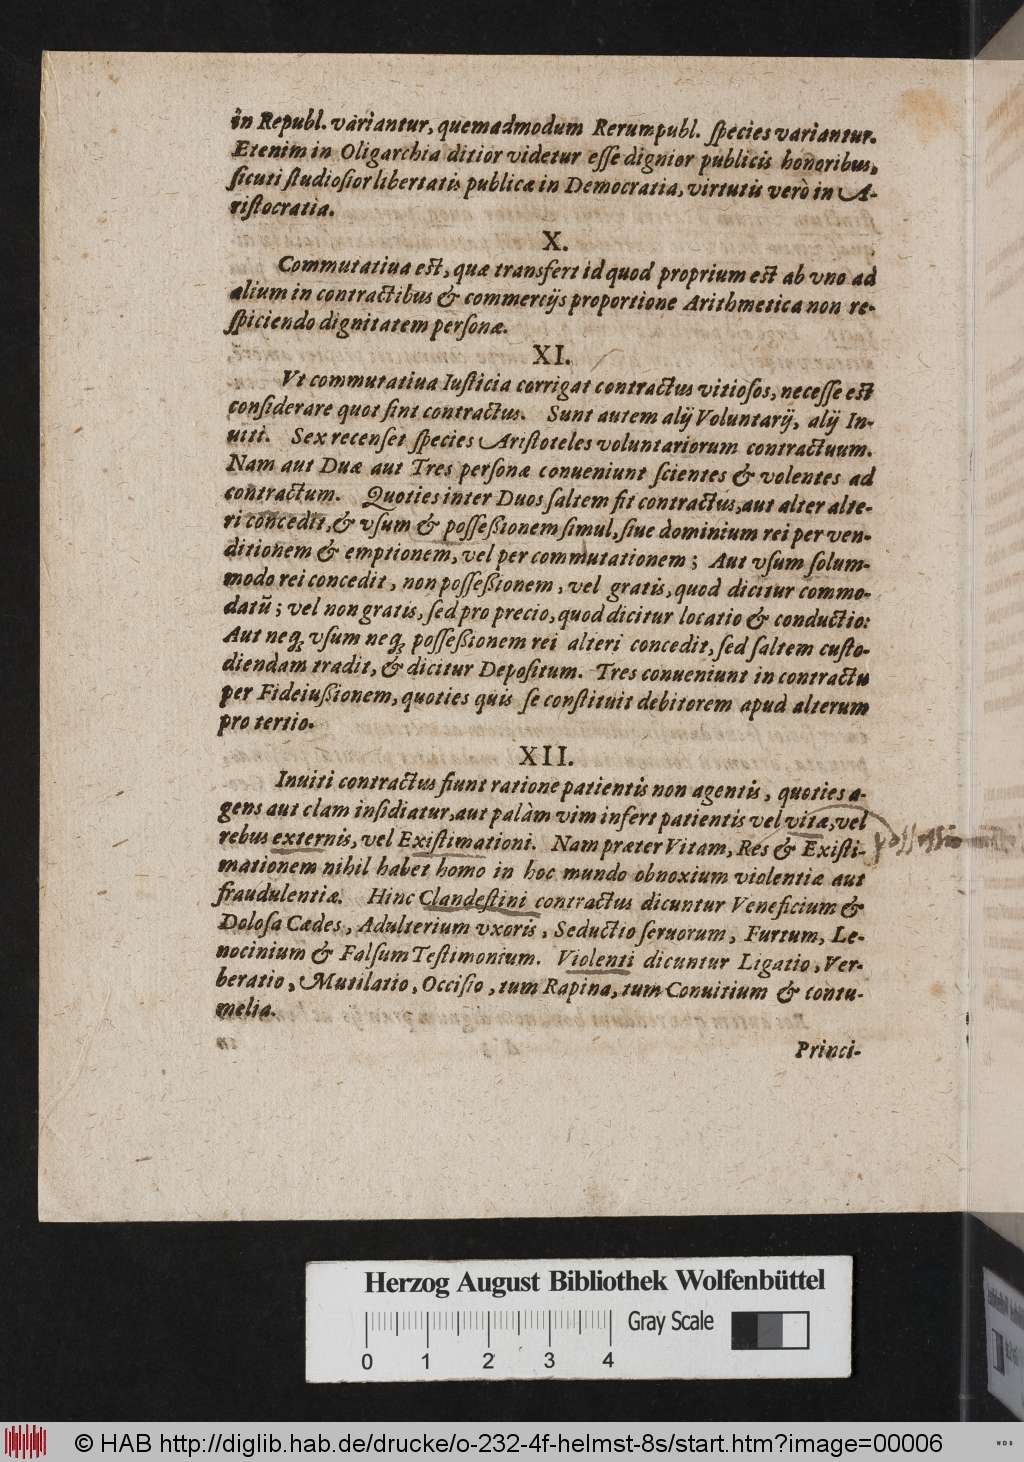 in Republ. variantur, quemadmodum Rerumpubl. ſpecies variantur.
Etenim in Oligarchia ditior videtur eſſe dignior publicis honoribus,
ſicuti ſtudioſior libertatis publicæ in Democratia, virtutis verò in A-
riſtocratia.
X.
Commutatiua est, quæ transfert id quod proprium est ab vno ad
alium in contractibus & commercijs proportione Arithmetica non re-
ſpiciendo dignitatem perſonæ.
XI.
Vt commutatiua Iuſticia corrigat contractus vitioſos, neceſſe est
conſiderare quot ſint contractus. Sunt autem alij Voluntarij, alij In-
uiti. Sex recenſet ſpecies Ariſtoteles voluntariorum contractuum.
Nam aut Duæ aut Tres perſonæ conueniunt ſcientes & volentes ad
contractum. Quoties inter Duos ſaltem fit contractus, aut alter alte-
ri concedit, & vſum & poſſeßionem ſimul, ſiue dominium rei per ven-
ditionem & emptionem, vel per commutationem; Aut vſum ſolum-
modo rei concedit, non poſſeßionem, vel gratis, quod dicitur commo-
datū; vel non gratis, ſed pro precio, quod dicitur locatio & conductio:
Aut neq; vſum neq; poſſeßionem rei alteri concedit, ſed ſaltem cuſto-
diendam tradit, & dicitur Depoſitum. Tres conueniunt in contractu
per Fideiußionem, quoties quis ſe conſtituit debitorem apud alterum
pro tertio.
XII.
Inuiti contractus fiunt ratione patientis non agentis, quoties a-
gens aut clam inſidiatur, aut palàm vim infert patientis vel vitæ, vel
rebus externis, vel Exiſtimationi. Nam præter Vitam, Res & Exiſti-
mationem nihil habet homo in hoc mundo obnoxium violentiæ aut
fraudulentiæ. Hinc Clandeſtini contractus dicuntur Veneficium &
Doloſa Cædes, Adulterium vxoris, Seductio ſeruorum, Furtum, Le-
nocinium & Falſum Teſtimonium. Violenti dicuntur Ligatio, Ver-
beratio, Mutilatio, Occiſio, tum Rapina, tum Conuitium & contu-
melia.
Princi-
Herzog August Bibliothek Wolfenbüttel
Gray Scale
0 1 2 3 4
© HAB http://diglib.hab.de/drucke/o-232-4f-helmst-8s/start.htm?image=00006